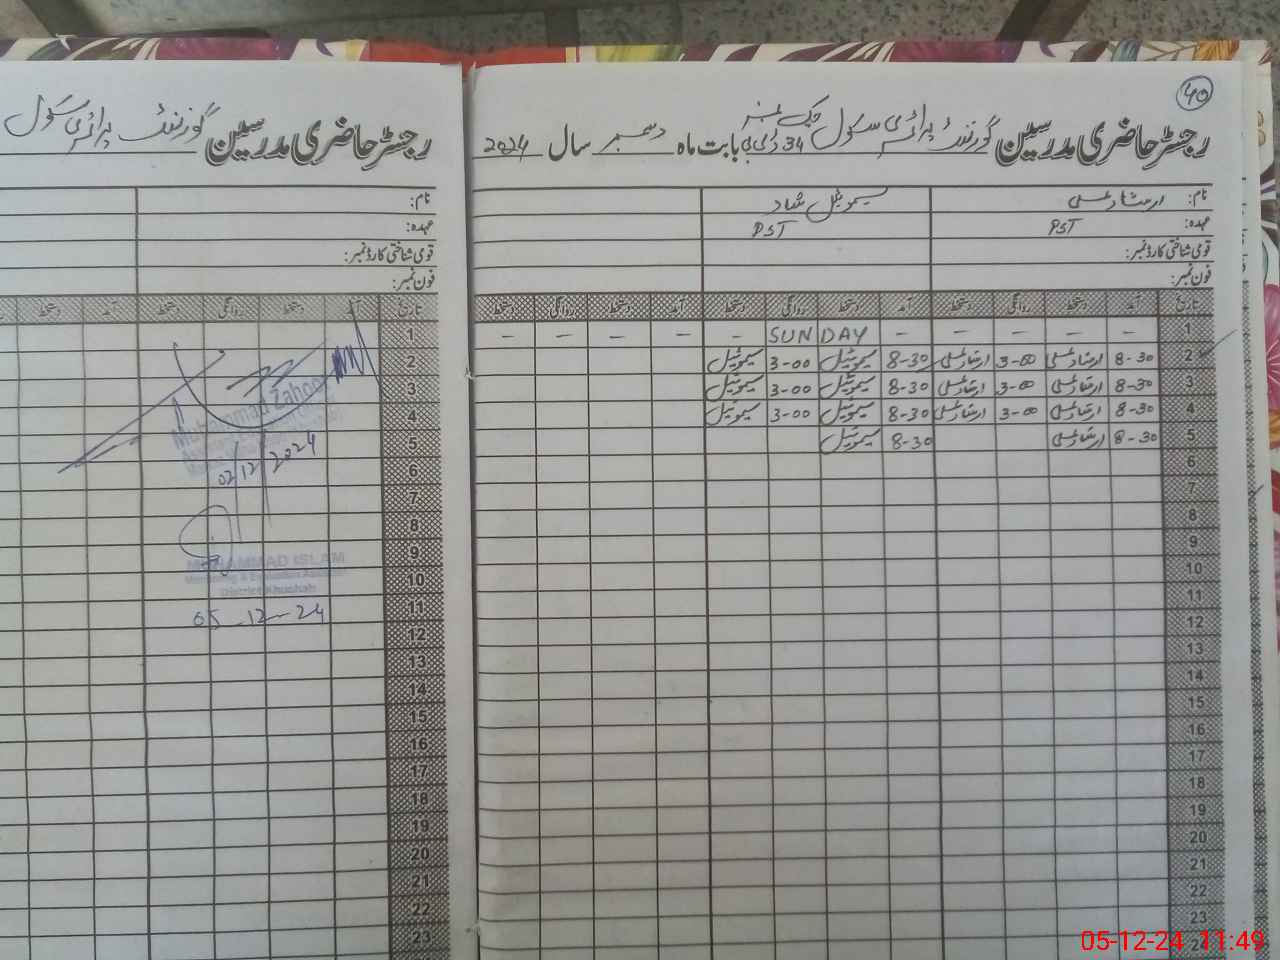 40
رجسٹر حاضری مدرسین گورنمنٹ پرائمری سکول چک نمبر 34 ڈی بی بابت ماہ دسمبر سال 2024
نام: ارشاد علی سیموئیل شہزاد
عہدہ: PST PST
قومی شناختی کارڈ نمبر:
فون نمبر:
تاریخ آمد دستخط روانگی دستخط آمد دستخط روانگی دستخط آمد دستخط روانگی دستخط
1 - - - - - SUNDAY - - - - -
2 8-30 ارشاد علی 3-00 ارشاد علی 8-30 سیموئیل 3-00 سیموئیل
3 8-30 ارشاد علی 3-00 ارشاد علی 8-30 سیموئیل 3-00 سیموئیل
4 8-30 ارشاد علی 3-00 ارشاد علی 8-30 سیموئیل 3-00 سیموئیل
5 8-30 ارشاد علی 8-30 سیموئیل
6
7
8
9
10
11
12
13
14
15
16
17
18
19
20
21
22
23
24
رجسٹر حاضری مدرسین گورنمنٹ پرائمری سکول
نام:
عہدہ:
قومی شناختی کارڈ نمبر:
فون نمبر:
تاریخ آمد دستخط روانگی دستخط آمد دستخط
1
2
3
4
5
6
7
8
9
10
11
12
13
14
15
16
17
18
19
20
21
22
23
Muhammad Zahoor
02/12/2024
MUHAMMAD ISLAM
Monitoring & Evaluation Assistant
District Khushab
05-12-24
05-12-24 11:49